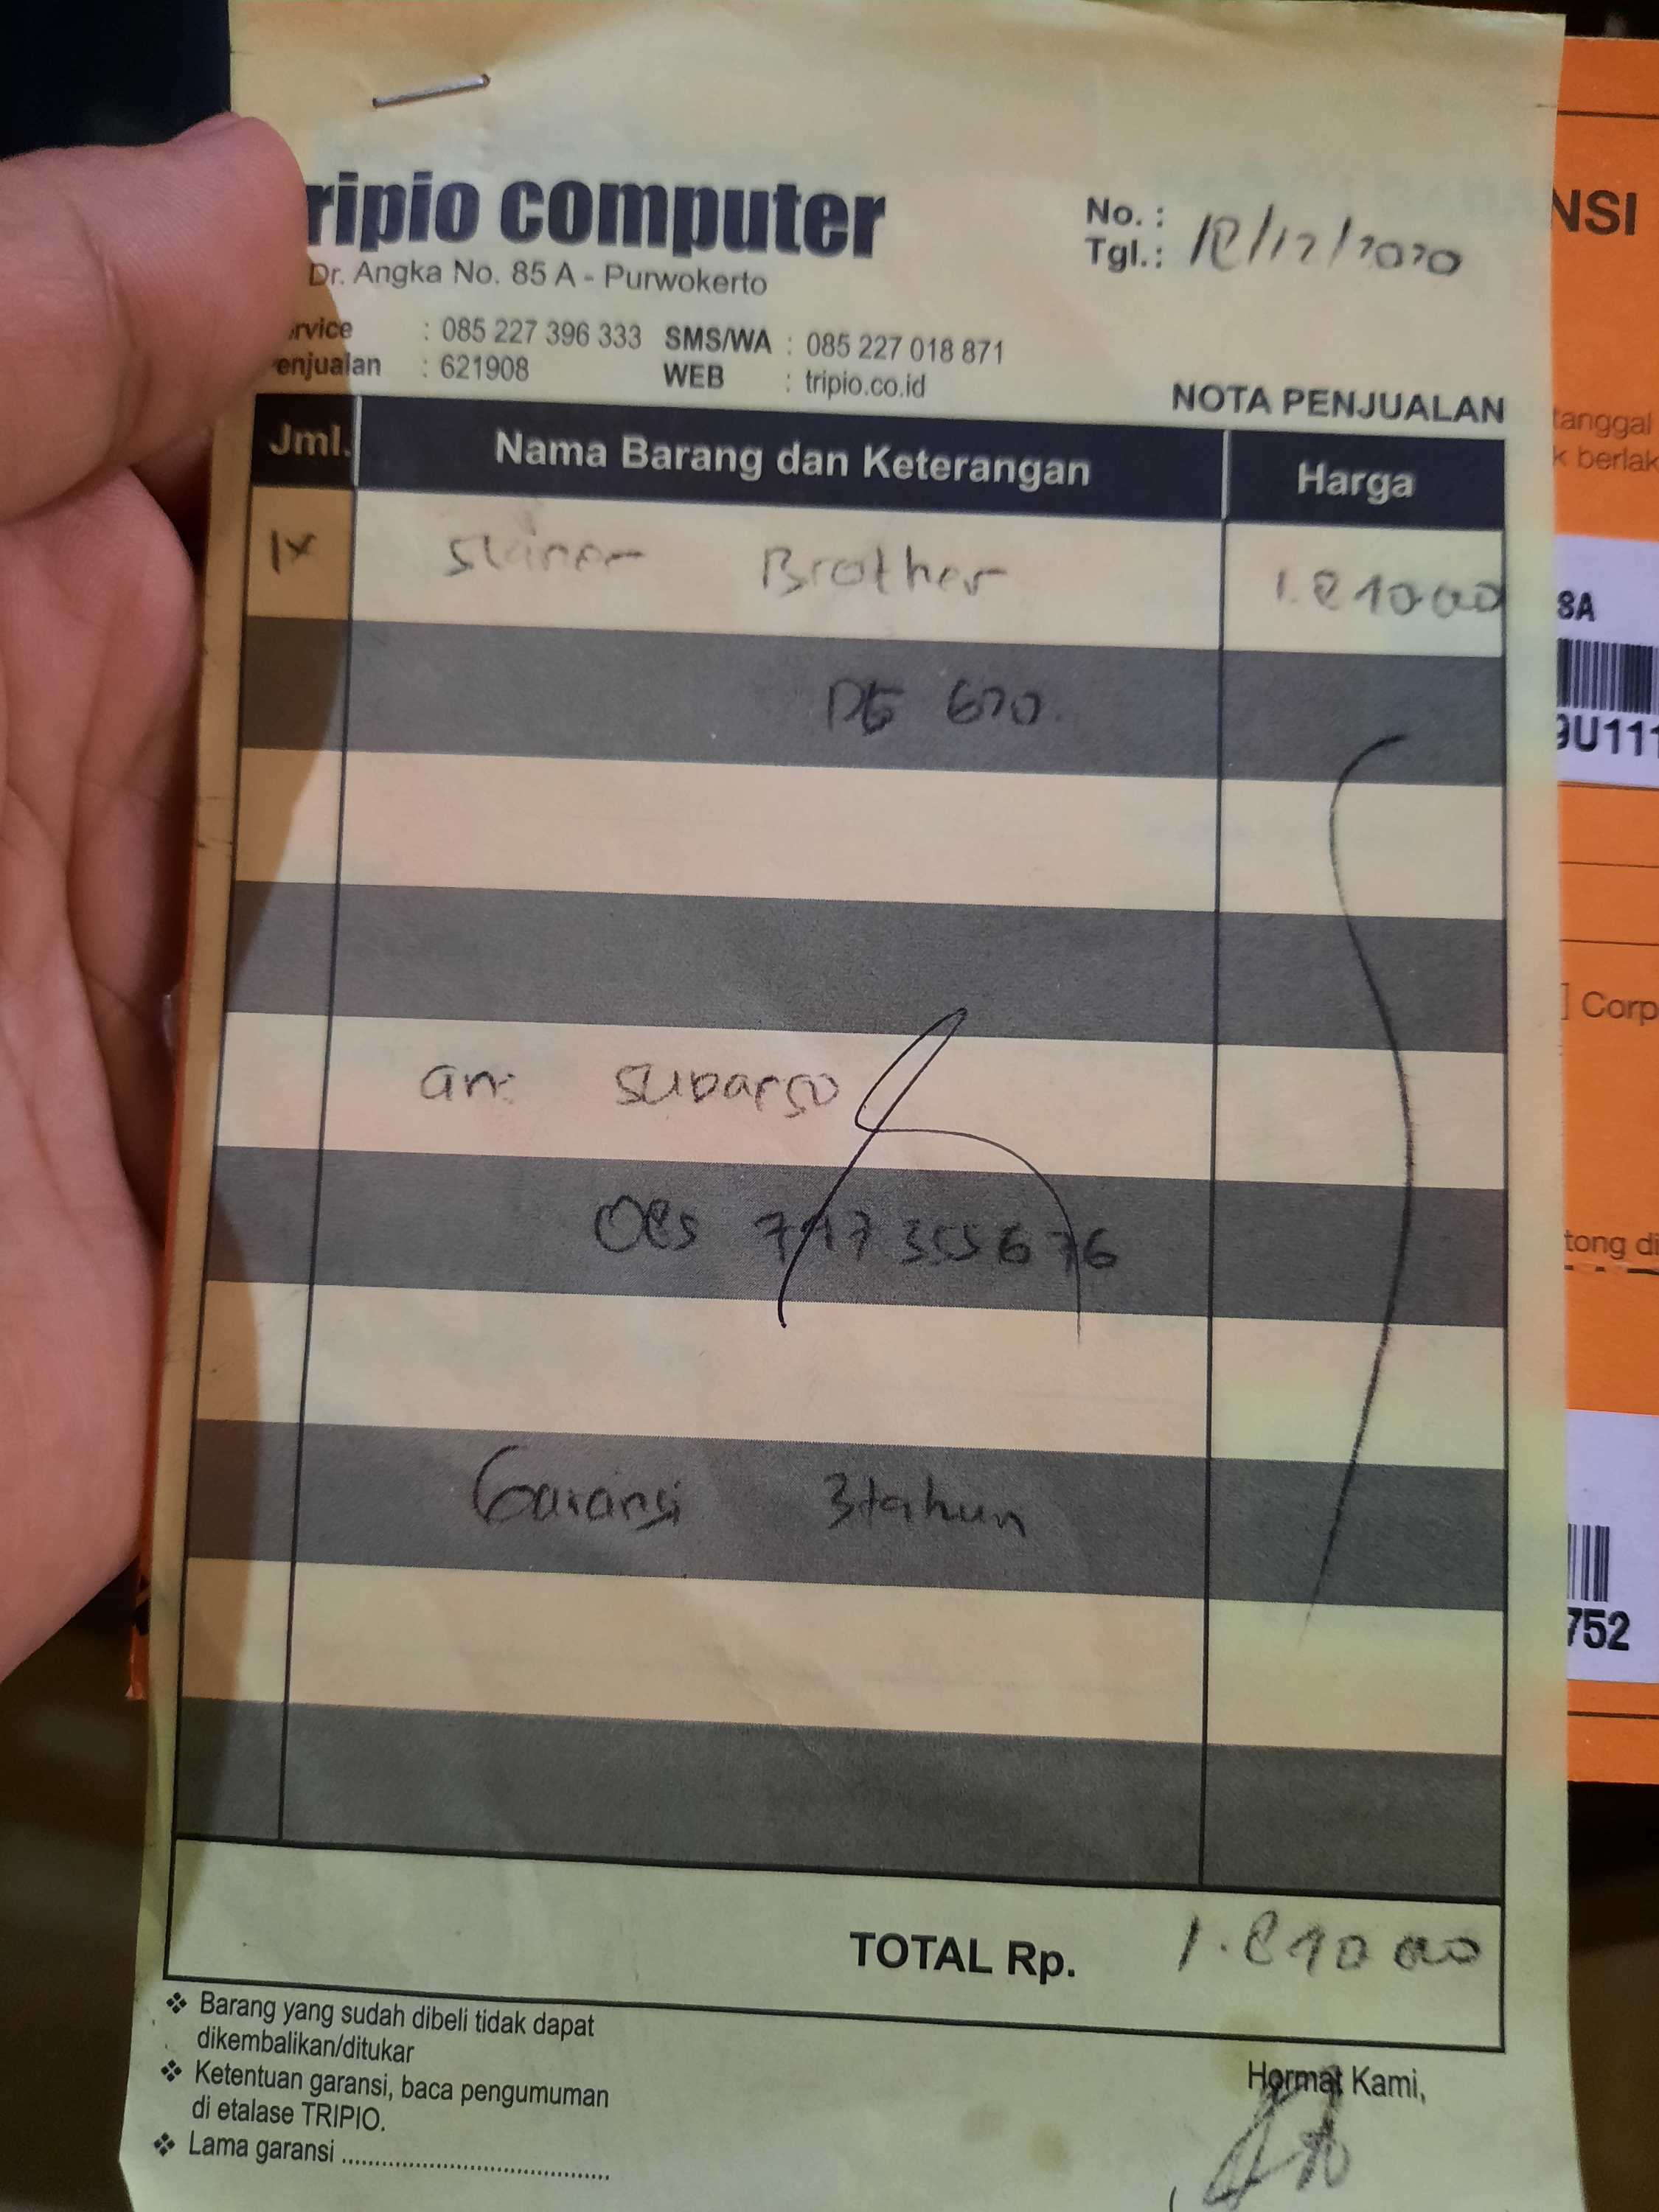 ripio computer
Dr. Angka No. 85 A - Purwokerto
No. :
Tgl.: 18/12/2020
rvice : 085 227 396 333 SMS/WA : 085 227 018 871
enjualan : 621908 WEB : tripio.co.id
NOTA PENJUALAN
Jml. Nama Barang dan Keterangan Harga
1x Scaner Brother 1.810000
an:
Garansi 3 tahun
TOTAL Rp. 1.810000
❖ Barang yang sudah dibeli tidak dapat
dikembalikan/ditukar
❖ Ketentuan garansi, baca pengumuman
di etalase TRIPIO.
❖ Lama garansi ........................................
Hormat Kami,
NSI
tanggal
k berlak
8A
9U111
Corp
tong di
752